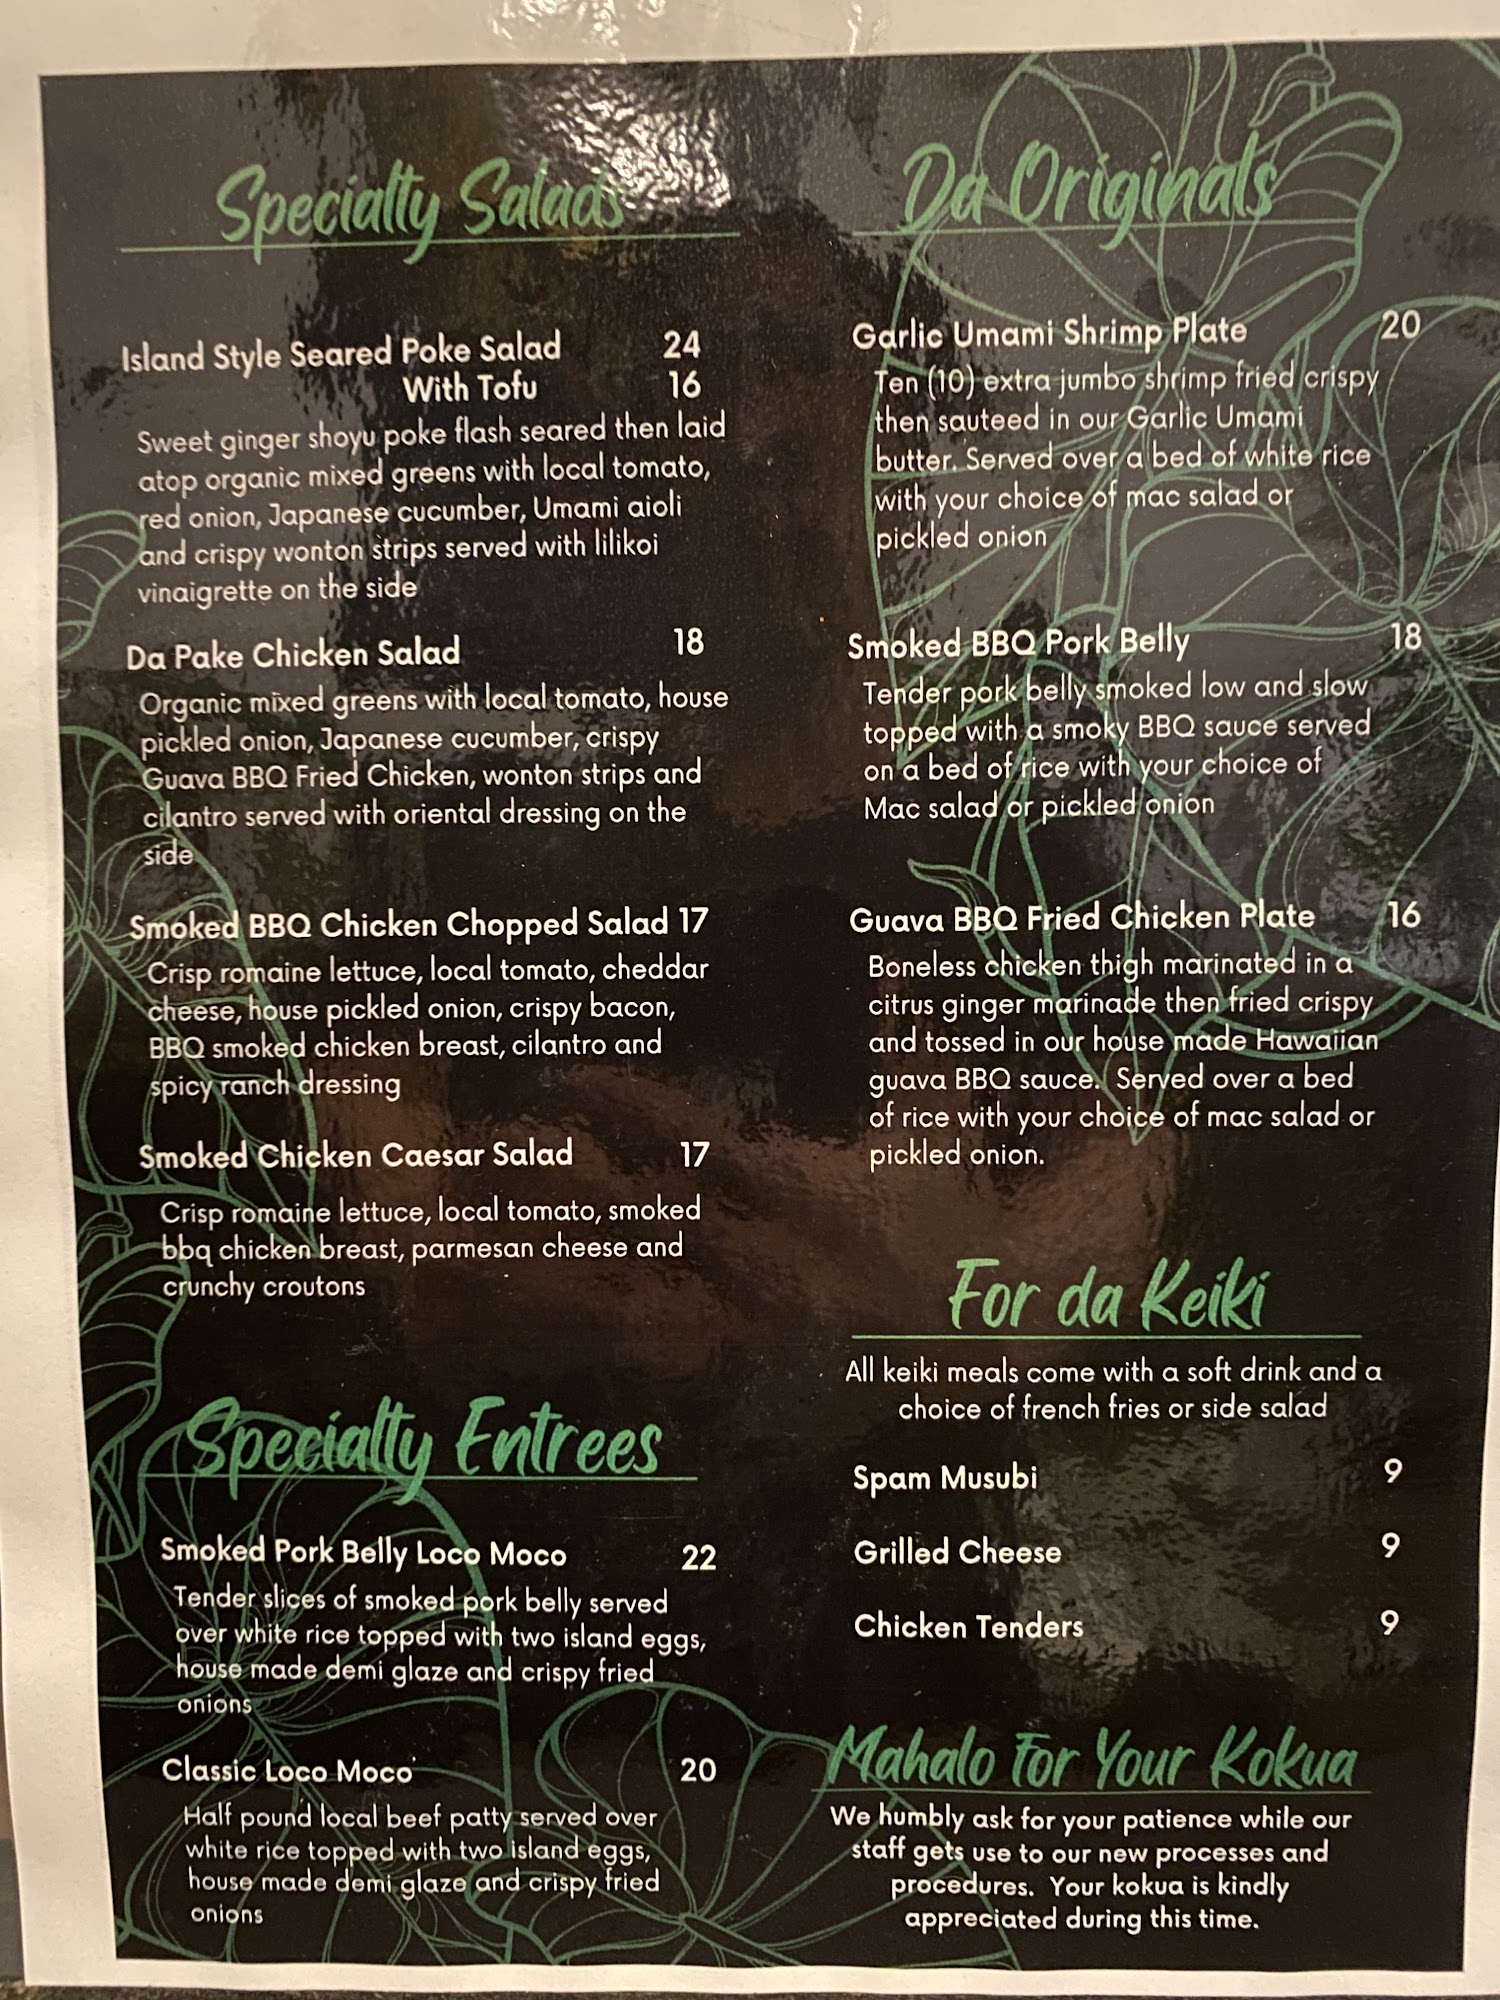 Specialty Salads
Island Style Seared Poke Salad 24
With Tofu 16
Sweet ginger shoyu poke flash seared then laid
atop organic mixed greens with local tomato,
red onion, Japanese cucumber, Umami aioli
and crispy wonton strips served with lilikoi
vinaigrette on the side
Da Pake Chicken Salad 18
Organic mixed greens with local tomato, house
pickled onion, Japanese cucumber, crispy
Guava BBQ Fried Chicken, wonton strips and
cilantro served with oriental dressing on the
side
Smoked BBQ Chicken Chopped Salad 17
Crisp romaine lettuce, local tomato, cheddar
cheese, house pickled onion, crispy bacon,
BBQ smoked chicken breast, cilantro and
spicy ranch dressing
Smoked Chicken Caesar Salad 17
Crisp romaine lettuce, local tomato, smoked
bbq chicken breast, parmesan cheese and
crunchy croutons
Specialty Entrees
Smoked Pork Belly Loco Moco 22
Tender slices of smoked pork belly served
over white rice topped with two island eggs,
house made demi glaze and crispy fried
onions
Classic Loco Moco 20
Half pound local beef patty served over
white rice topped with two island eggs,
house made demi glaze and crispy fried
onions
Da Originals
Garlic Umami Shrimp Plate 20
Ten (10) extra jumbo shrimp fried crispy
then sauteed in our Garlic Umami
butter. Served over a bed of white rice
with your choice of mac salad or
pickled onion
Smoked BBQ Pork Belly 18
Tender pork belly smoked low and slow
topped with a smoky BBQ sauce served
on a bed of rice with your choice of
Mac salad or pickled onion
Guava BBQ Fried Chicken Plate 16
Boneless chicken thigh marinated in a
citrus ginger marinade then fried crispy
and tossed in our house made Hawaiian
guava BBQ sauce. Served over a bed
of rice with your choice of mac salad or
pickled onion.
For da Keiki
All keiki meals come with a soft drink and a
choice of french fries or side salad
Spam Musubi 9
Grilled Cheese 9
Chicken Tenders 9
Mahalo For Your Kokua
We humbly ask for your patience while our
staff gets use to our new processes and
procedures. Your kokua is kindly
appreciated during this time.